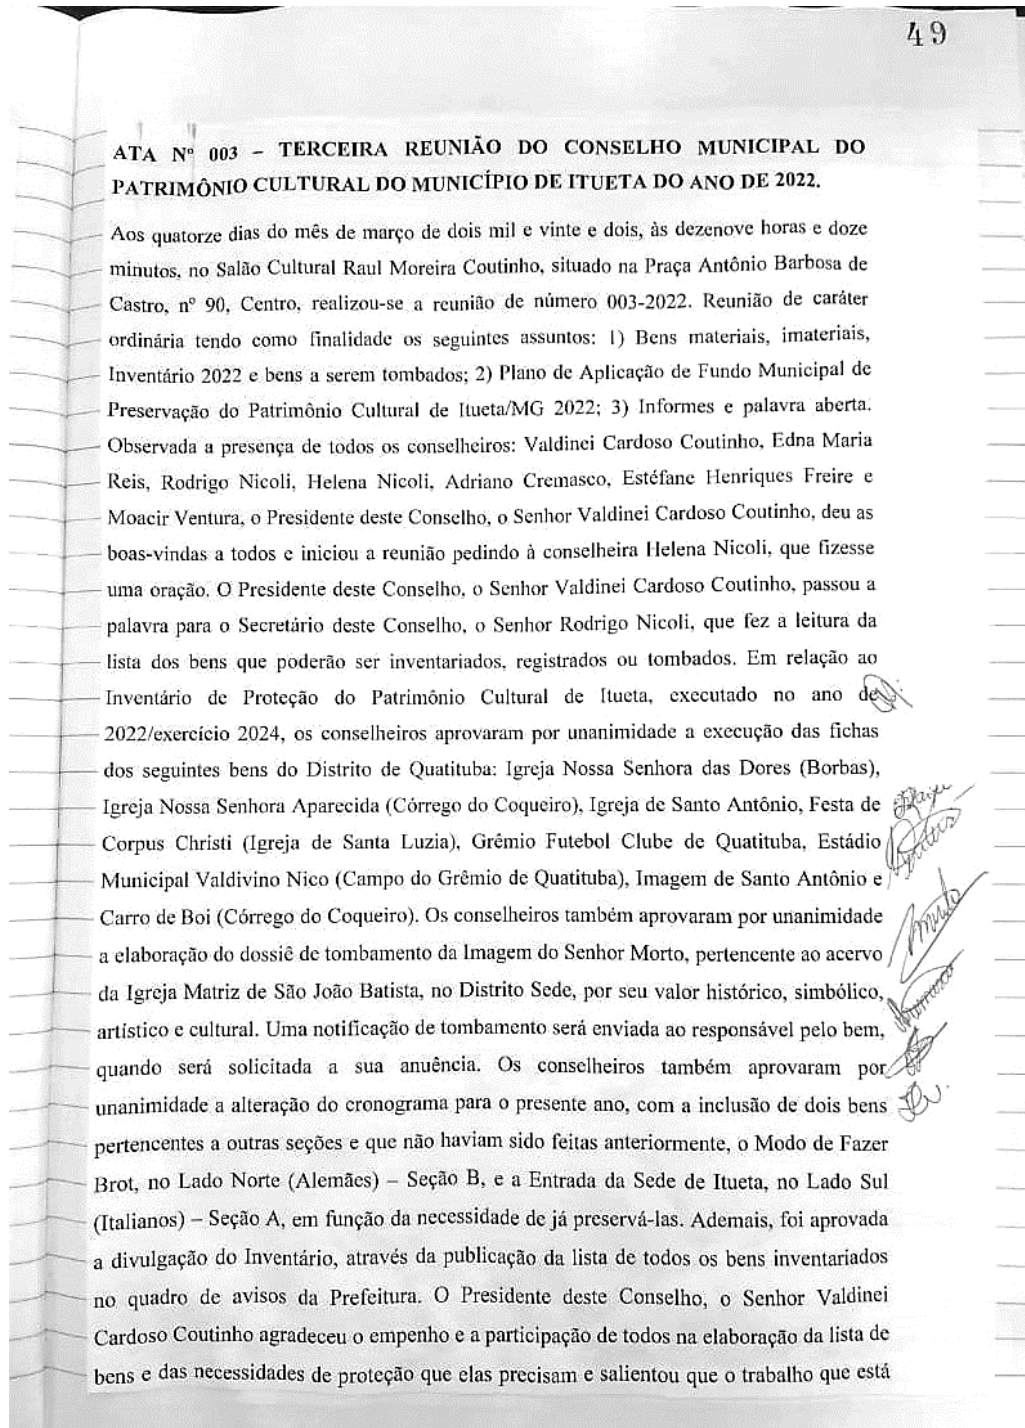 49
ATA Nº 003 – TERCEIRA REUNIÃO DO CONSELHO MUNICIPAL DO
PATRIMÔNIO CULTURAL DO MUNICÍPIO DE ITUETA DO ANO DE 2022.
Aos quatorze dias do mês de março de dois mil e vinte e dois, às dezenove horas e doze
minutos, no Salão Cultural Raul Moreira Coutinho, situado na Praça Antônio Barbosa de
Castro, nº 90, Centro, realizou-se a reunião de número 003-2022. Reunião de caráter
ordinária tendo como finalidade os seguintes assuntos: 1) Bens materiais, imateriais,
Inventário 2022 e bens a serem tombados; 2) Plano de Aplicação de Fundo Municipal de
Preservação do Patrimônio Cultural de Itueta/MG 2022; 3) Informes e palavra aberta.
Observada a presença de todos os conselheiros: Valdinei Cardoso Coutinho, Edna Maria
Reis, Rodrigo Nicoli, Helena Nicoli, Adriano Cremasco, Estéfane Henriques Freire e
Moacir Ventura, o Presidente deste Conselho, o Senhor Valdinei Cardoso Coutinho, deu as
boas-vindas a todos e iniciou a reunião pedindo à conselheira Helena Nicoli, que fizesse
uma oração. O Presidente deste Conselho, o Senhor Valdinei Cardoso Coutinho, passou a
palavra para o Secretário deste Conselho, o Senhor Rodrigo Nicoli, que fez a leitura da
lista dos bens que poderão ser inventariados, registrados ou tombados. Em relação ao
Inventário de Proteção do Patrimônio Cultural de Itueta, executado no ano de
2022/exercício 2024, os conselheiros aprovaram por unanimidade a execução das fichas
dos seguintes bens do Distrito de Quatituba: Igreja Nossa Senhora das Dores (Borbas),
Igreja Nossa Senhora Aparecida (Córrego do Coqueiro), Igreja de Santo Antônio, Festa de
Corpus Christi (Igreja de Santa Luzia), Grêmio Futebol Clube de Quatituba, Estádio
Municipal Valdivino Nico (Campo do Grêmio de Quatituba), Imagem de Santo Antônio e
Carro de Boi (Córrego do Coqueiro). Os conselheiros também aprovaram por unanimidade
a elaboração do dossiê de tombamento da Imagem do Senhor Morto, pertencente ao acervo
da Igreja Matriz de São João Batista, no Distrito Sede, por seu valor histórico, simbólico,
artístico e cultural. Uma notificação de tombamento será enviada ao responsável pelo bem,
quando será solicitada a sua anuência. Os conselheiros também aprovaram por
unanimidade a alteração do cronograma para o presente ano, com a inclusão de dois bens
pertencentes a outras seções e que não haviam sido feitas anteriormente, o Modo de Fazer
Brot, no Lado Norte (Alemães) – Seção B, e a Entrada da Sede de Itueta, no Lado Sul
(Italianos) – Seção A, em função da necessidade de já preservá-las. Ademais, foi aprovada
a divulgação do Inventário, através da publicação da lista de todos os bens inventariados
no quadro de avisos da Prefeitura. O Presidente deste Conselho, o Senhor Valdinei
Cardoso Coutinho agradeceu o empenho e a participação de todos na elaboração da lista de
bens e das necessidades de proteção que elas precisam e salientou que o trabalho que está